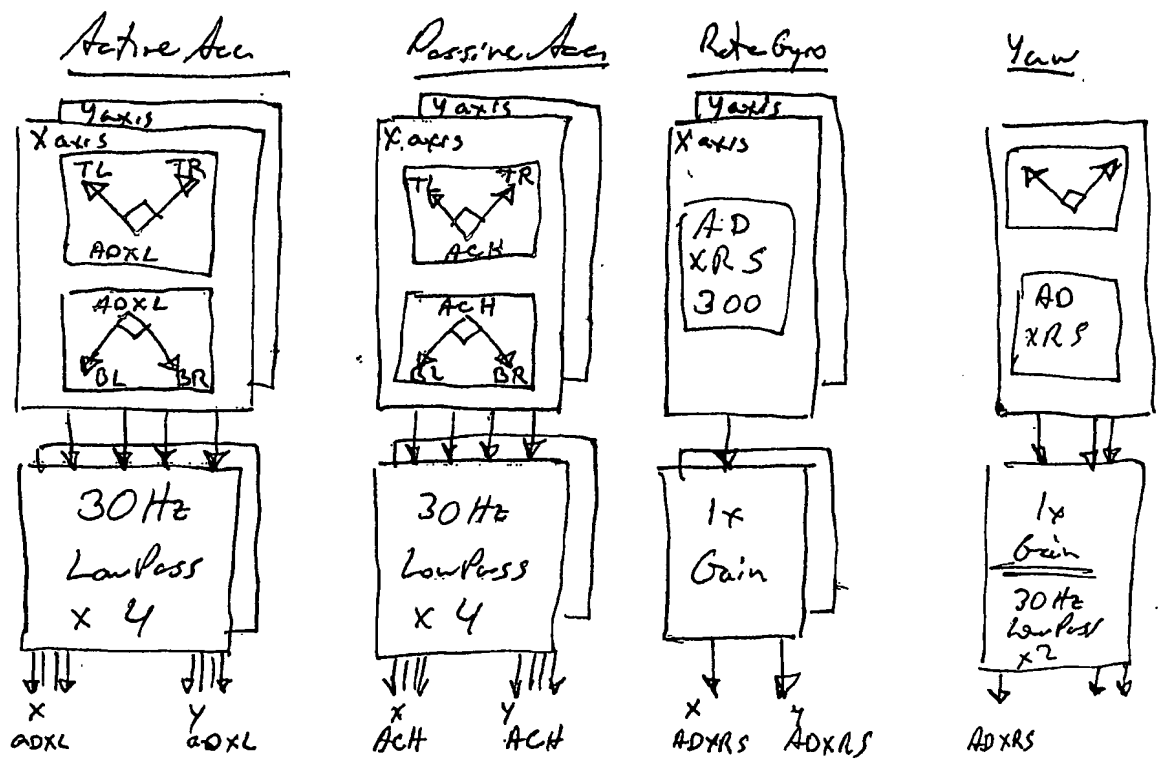 Active Acc
Y axis
X axis
TL TR
ADXL
ADXL
BL BR
30Hz
LowPass
x 4
X
aDXL
Y
aDXL
Passive Acc
Y axis
X axis
TL TR
ACH
ACH
BL BR
30Hz
LowPass
x 4
X
ACH
Y
ACH
Rate Gyro
Y axis
X axis
AD
XRS
300
1x
Gain
X
ADXRS
Y
ADXRS
Yaw
AD
XRS
1x
Gain
30Hz
LowPass
x2
ADXRS